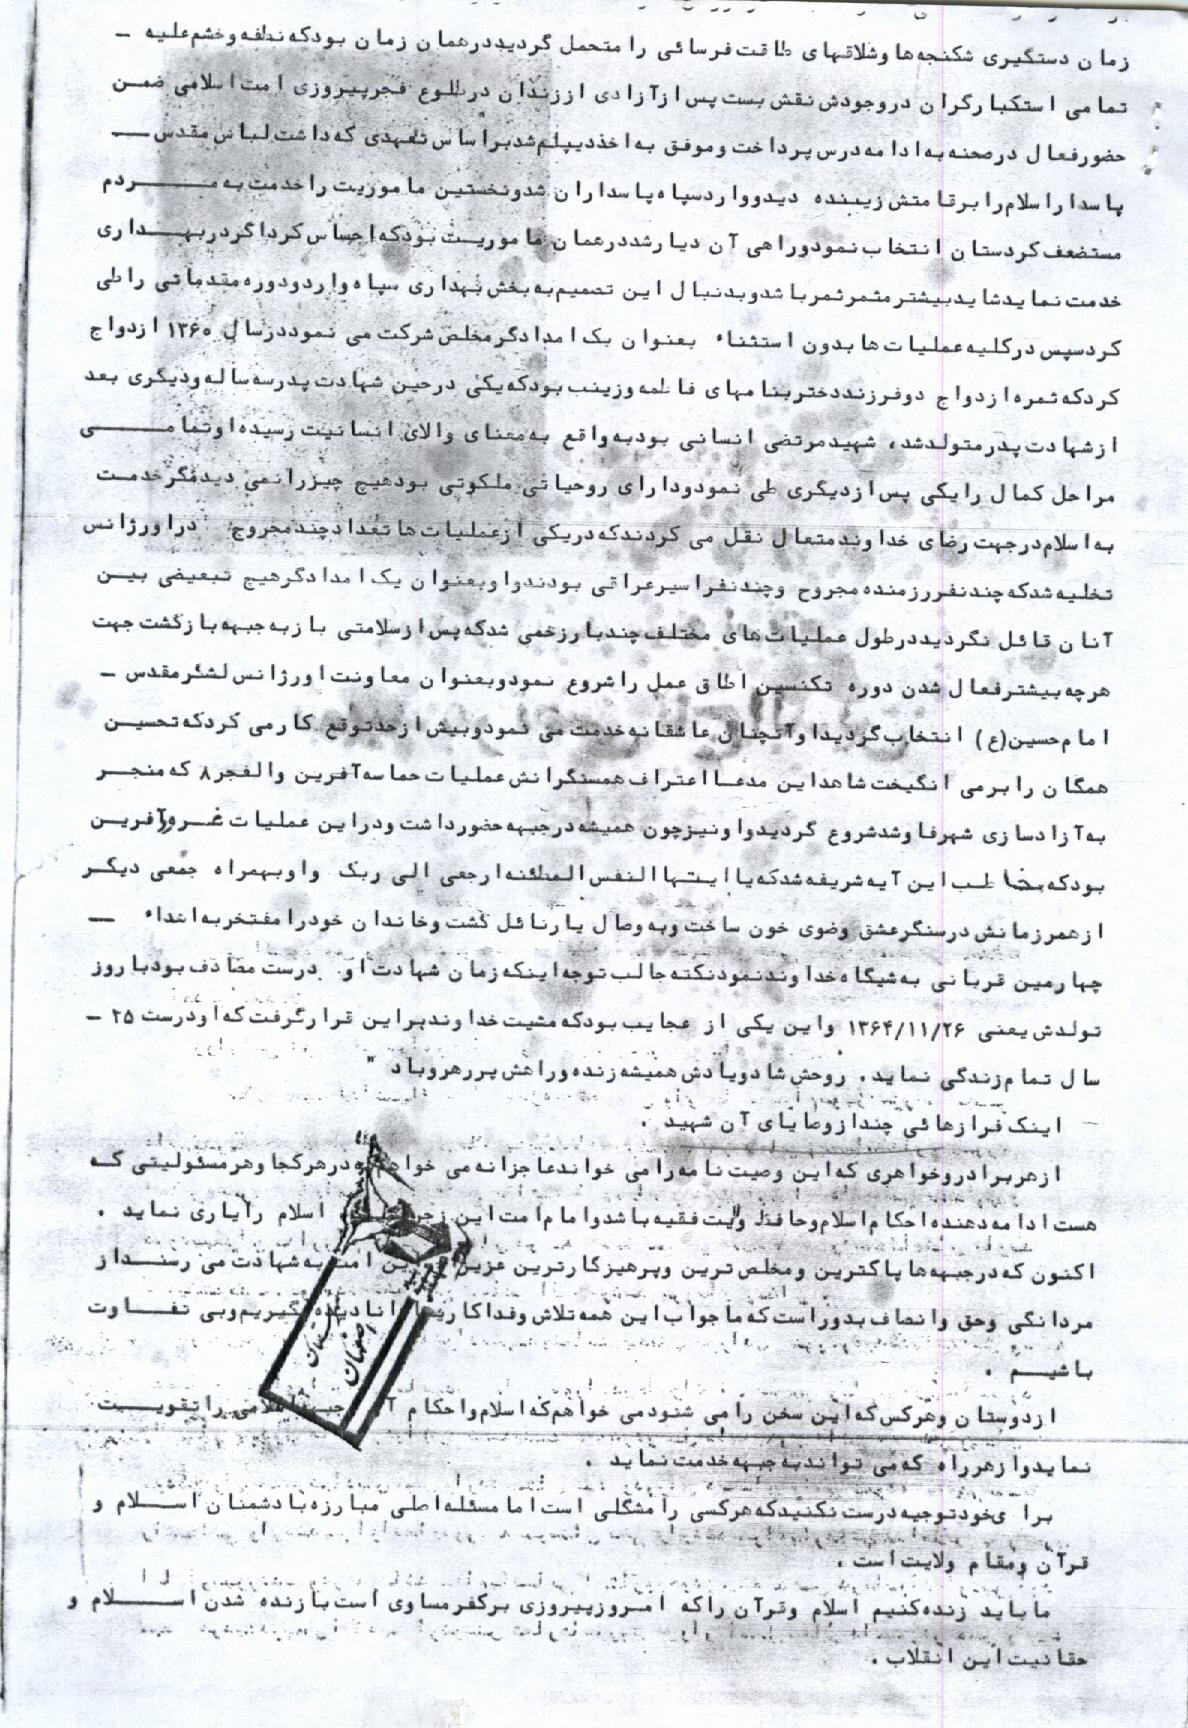 زمان دستگیری شکنجه‌ها وشلاقهای طاقت فرسائی را متحمل گردیددرهمان زمان بودکه نطفه وخشم علیه ـ
تمامی استکبارگران دروجودش نقش بست پس ازآزادی اززندان درطلوع فجرپیروزی امت اسلامی ضمن
حضورفعال درصحنه به ادامه درس پرداخت وموفق به اخذدیپلم شدبراساس تعهدی که داشت لباس مقدس ـ
پاسداراسلام را برقامتش زیبنده دیدوواردسپاه پاسداران شدونخستین ماموریت راخدمت به مـردم
مستضعف کردستان انتخاب نمودوراهی آن دیارشددرهمان ماموریت بودکه احساس کرداگردربهـداری
خدمت نمایدشایدبیشترمثمرثمرباشدوبدنبال این تصمیم به بخش بهداری سپاه واردودوره مقدماتی راطی
کردسپس درکلیه عملیات‌ها بدون استثناء بعنوان یک امدادگرمخلص شرکت می نموددرسال ۱۳۶۰ ازدواج
کردکه ثمره ازدواج دوفرزنددختربنامهای فاطمه وزینب بودکه یکی درحین شهادت پدرسه ساله ودیگری بعد
ازشهادت پدرمتولدشد، شهیدمرتضی انسانی بودبه واقع به معنای والای انسانیت رسیده اوتمامـی
مراحل کمال رایکی پس ازدیگری طی نمودودارای روحیاتی ملکوتی بودهیچ چیزرانمی دیدمگرخدمـت
به اسلام درجهت رضای خداوندمتعال نقل می کردندکه دریکی ازعملیات‌ها تعدادچندمجروح دراورژانس
تخلیه شدکه چندنفررزمنده مجروح وچندنفراسیرعراقی بودنداوبعنوان یک امدادگرهیچ تبعیضی بیـن
آنان قائل نگردیددرطول عملیات‌های مختلف چندبارزخمی شدکه پس ازسلامتی بازبه جبهه بازگشت جهت
هرچه بیشترفعال شدن دوره تکنسین اطاق عمل را شروع نمودوبعنوان معاونت اورژانس لشگرمقدس ـ
امام حسین(ع) انتخاب گردیداوآنچنان عاشقانه خدمت می نمودوبیش ازحدتوقع کارمی کردکه تحسیـن
همگان را برمی انگیخت شاهداین مدعـا اعتراف همسنگرانش عملیات حماسه آفرین والفجر۸ که منجـر
به آزادسازی شهرفاوشدشروع گردیدواونیزچون همیشه درجبهه حضورداشت ودراین عملیات غـرورآفرین
بودکه مخاطب این آیه شریفه شدکه یاایتهاالنفس المطئنه ارجعی الی ربک واوبهمراه جمعی دیگـر
ازهمرزمانش درسنگرعشق وضوی خون ساخت وبه وصال یارنائل گشت وخاندان خودرامفتخربه اهداء ـ
چهارمین قربانی به شیگاه خداوندنمودنکته جالب توجه اینکه زمان شهادت او درست مصادف بودبا روز
تولدش یعنی ۱۳۶۴/۱۱/۲۶ واین یکی از عجایب بودکه مشیت خداوندبراین قرارگرفت که اودرست ۲۵ ـ
سال تمام زندگی نماید. روحش شادویادش همیشه زنده وراهش پررهروباد "
اینک فرازهائی چندازوصایای آن شهید .
ازهربرادروخواهری که این وصیت نامه رامی خواندعاجزانه می خواهم درهرکجا وهرمسئولیتی کـه
هست ادامه دهنده احکام اسلام وحافظ ولایت فقیه باشدوامام امت این اسلام رایاری نماید .
اکنون که درجبهه‌ها پاکترین ومخلص ترین وپرهیزگارترین عزیزان این امت به شهادت می رسنـداز
مردانگی وحق وانصاف بدوراست که ماجواب این همه تلاش وفداکاریها رانادیده بگیریم وبی تفـاوت
باشیـم .
ازدوستان وهرکس که این سخن رامی شنودمی خواهم که اسلام واحکام آن جبهه اسلامی راتقویـت
نمایدوازهرراه که می تواندبه جبهه خدمت نماید .
برای خودتوجیه درست نکنیدکه هرکسی رامشگلی است امامسئله اصلی مبارزه بادشمنان اسـلام و
قرآن ومقام ولایت است .
مابایدزنده کنیم اسلام وقرآن راکه امروزپیروزی برکفرمساوی است بازنده شدن اسـلام و
حقانیت این انقلاب .